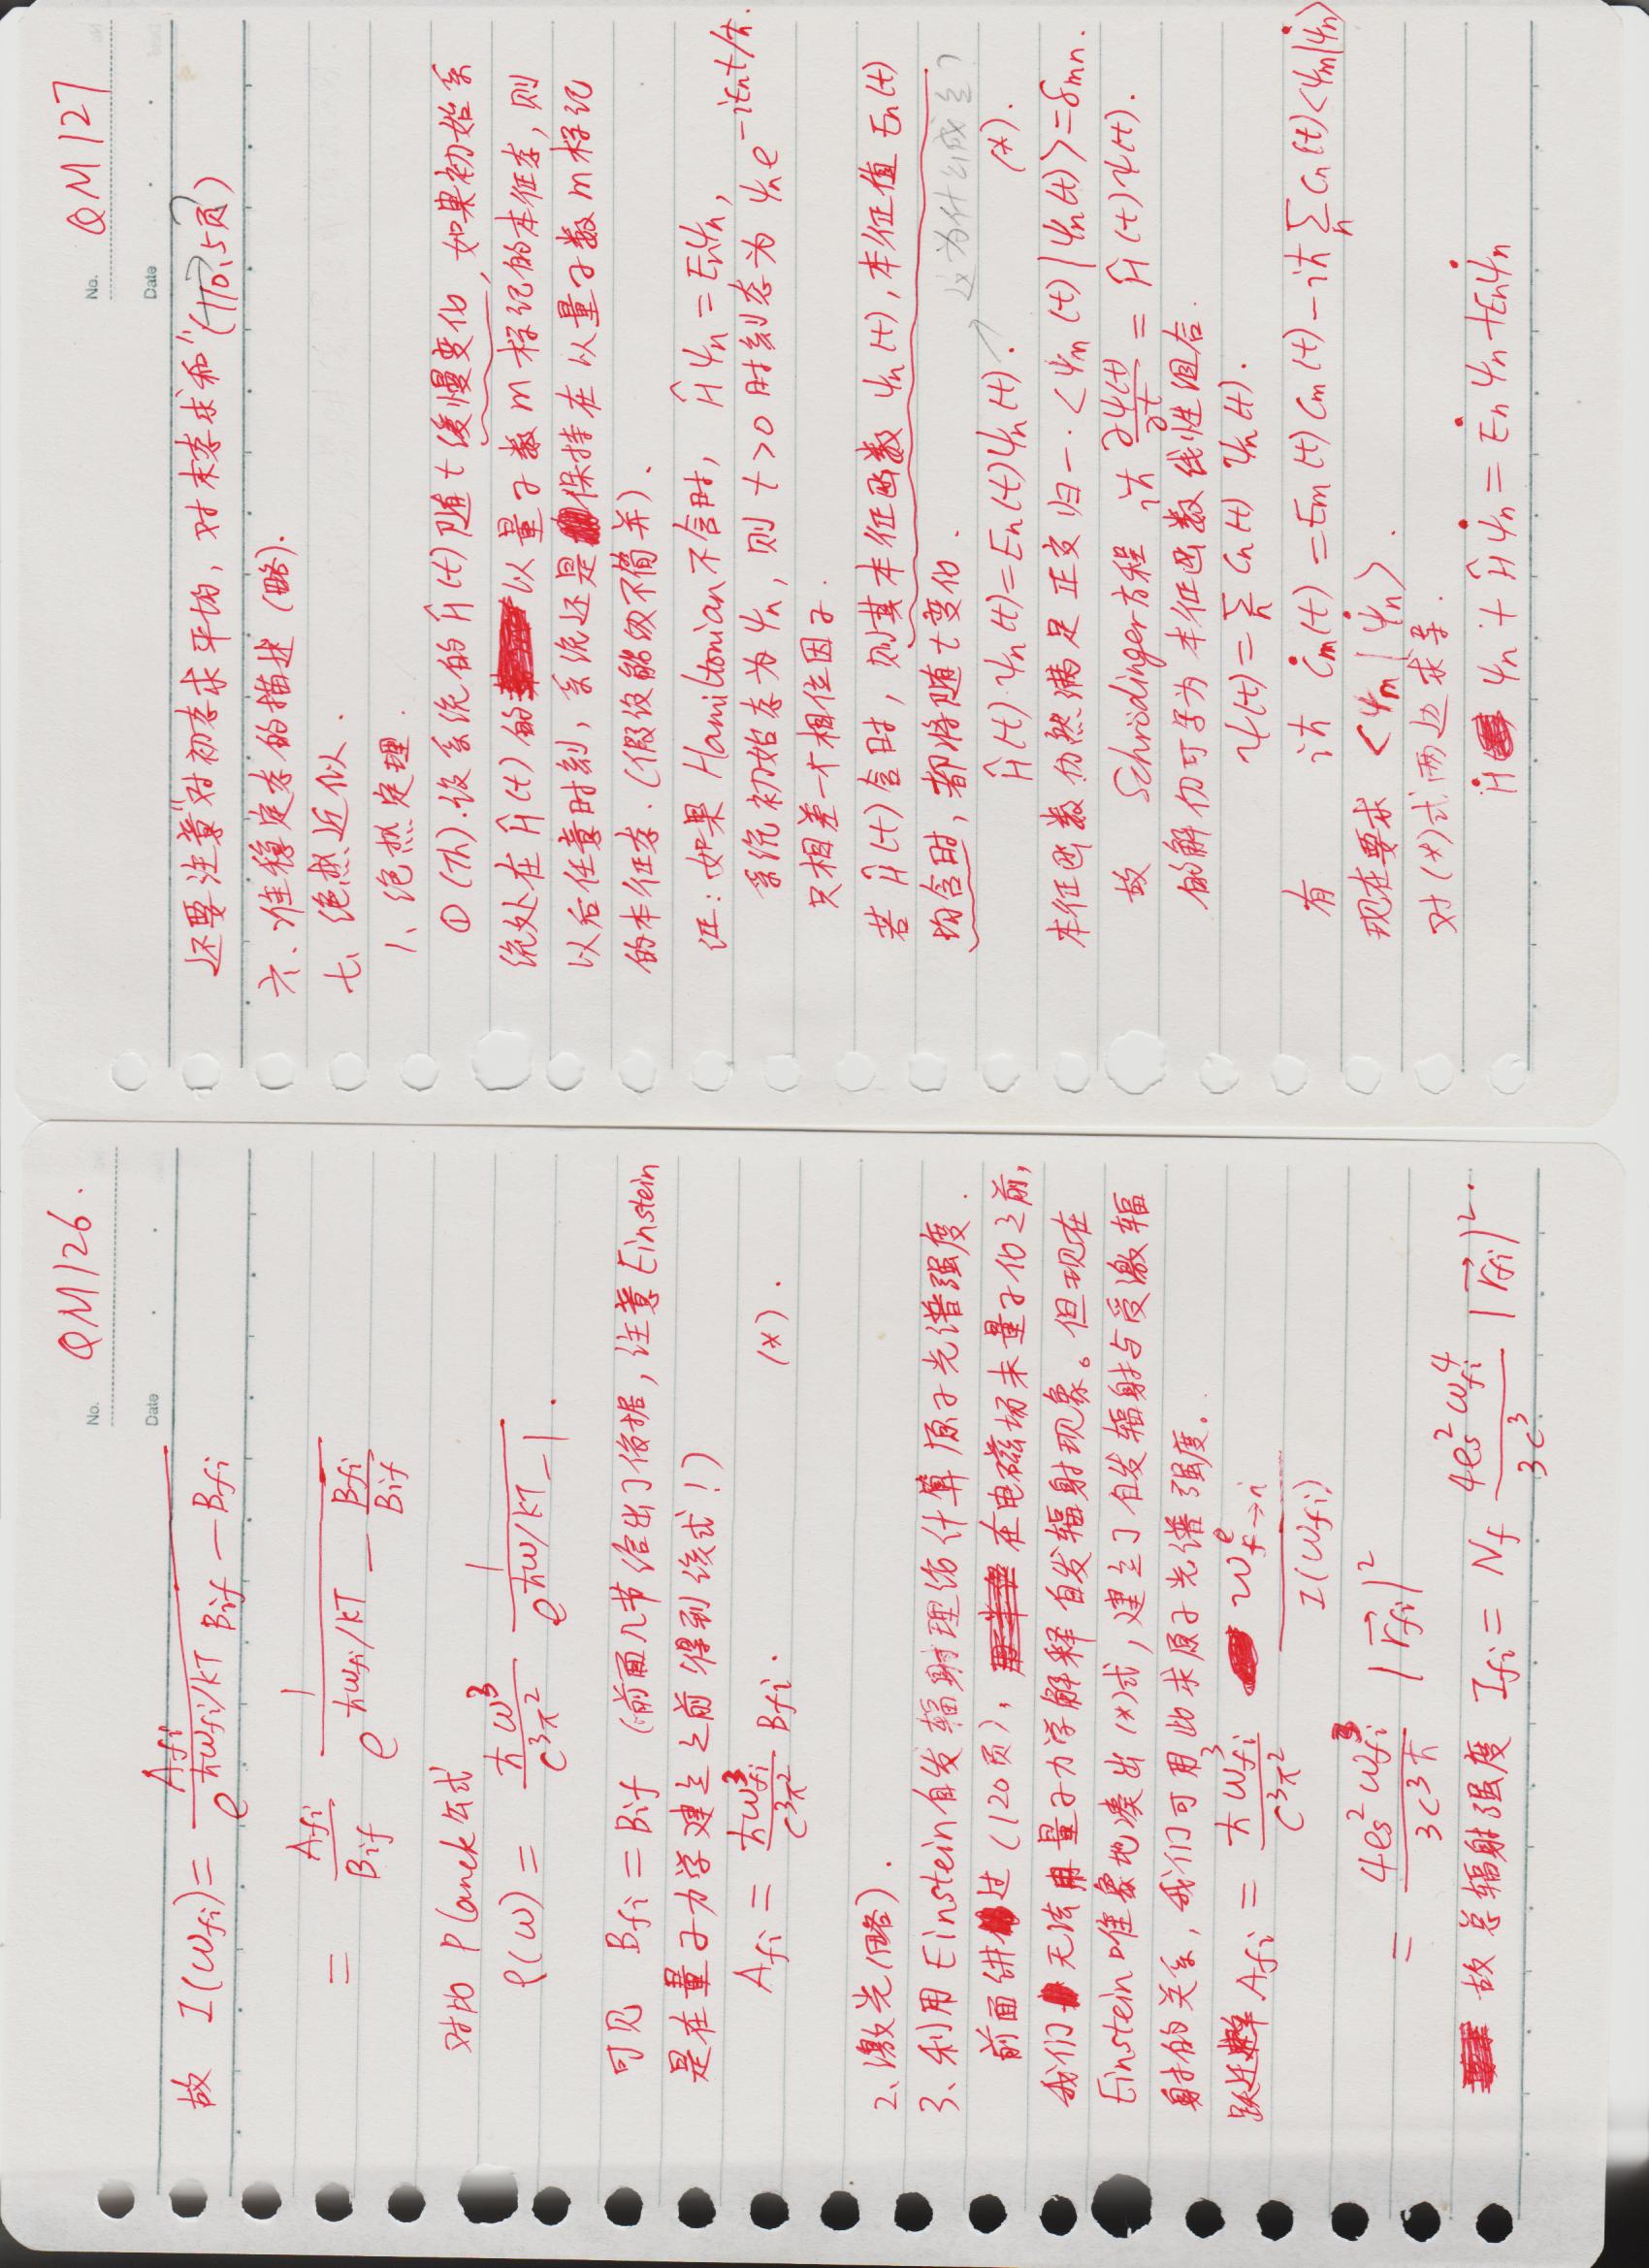 No. QM126.
Date
故 I(ω_fi) = A_fi / (e^{ħω_fi/kT} B_if − B_fi)
= A_fi/B_if · 1/(e^{ħω_fi/kT} − B_fi/B_if)
对比 Planck 公式
ρ(ω) = ħω³/(c³π²) · 1/(e^{ħω/kT} − 1).
可见 B_fi = B_if (前面几节给出了依据, 注意 Einstein
是在量子力学建立之前得到该式!)
A_fi = ħω_fi³/(c³π²) B_fi. (*).
2、激光(略).
3、利用 Einstein 自发辐射理论计算原子光谱强度.
前面讲过(120页), 在电磁场未量子化之前,
我们无法用量子力学解释自发辐射现象。但现在
Einstein 唯象地凑出(*)式, 建立了自发辐射与受激辐
射的关系, 我们可用此求原子光谱强度。
跃迁速率 A_fi = ħω_fi³/(c³π²) · w^e_{f→i}/I(ω_fi)
= 4e_s²ω_fi³/(3c³ħ) |r⃗_fi|²
故总辐射强度 I_fi = N_f 4e_s²ω_fi⁴/(3c³) |r⃗_fi|².
No. QM127
Date
还要注意"对初态求平均, 对末态求和"(110.5页)
六、准稳定态的描述(略).
七、绝热近似.
1、绝热定理.
① (Th). 设系统的 Ĥ(t) 随 t 缓慢变化, 如果初始系
统处在 Ĥ(t) 的以量子数 m 标记的本征态, 则
以后任意时刻, 系统还是保持在以量子数 m 标记
的本征态. (假设能级不简并).
证: 如果 Hamiltonian 不含时, Ĥψ_n = E_nψ_n,
系统初始态为 ψ_n, 则 t>0 时刻态为 ψ_n e^{−iE_nt/ħ}.
只相差一个相位因子.
若 Ĥ(t) 含时, 则其本征函数 ψ_n(t), 本征值 E_n(t)
均含时, 都将随 t 变化.
这为什么成立?
Ĥ(t)·ψ_n(t) = E_n(t)ψ_n(t). (*).
本征函数仍然满足正交归一. <ψ_m(t)|ψ_n(t)> = δ_mn.
故 Schrödinger 方程 iħ ∂ψ(t)/∂t = Ĥ(t)ψ(t).
的解仍可写为本征函数线性组合.
ψ(t) = Σ_n C_n(t) ψ_n(t).
有 iħ Ċ_m(t) = E_m(t) C_m(t) − iħ Σ_n C_n(t) <ψ_m|ψ̇_n>
现在要求 <ψ_m|ψ̇_n>.
对(*)式两边求导.
Ḣ ψ_n + Ĥ ψ̇_n = Ė_n ψ_n + E_n ψ̇_n